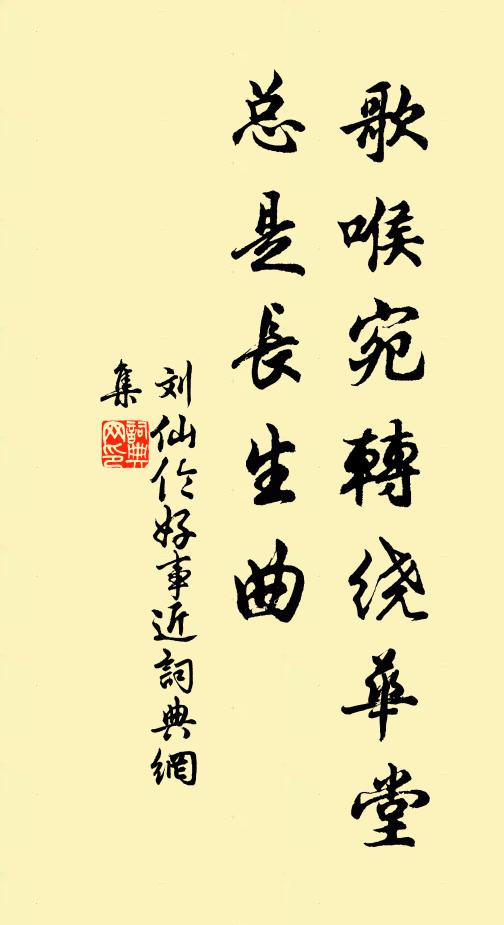 歌喉宛轉绕華堂
总是長生曲
刘仙伦好事近詞典網
集
詞典
网印